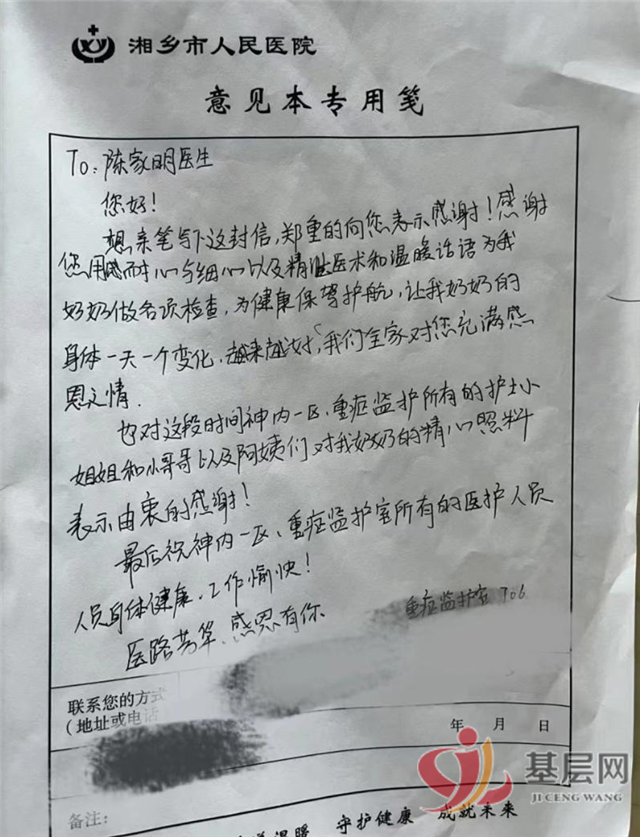 湘乡市人民医院
意见本专用笺
To：陈家明医生
您好！
想亲笔写下这封信，郑重的向您表示感谢！感谢
您用耐心与细心以及精湛医术和温暖话语为我
奶奶做各项检查，为健康保驾护航，让我奶奶的
身体一天一个变化，越来越好，我们全家对您充满感
恩之情.
也对这段时间神内一区、重症监护所有的护士小
姐姐和小哥哥以及阿姨们对我奶奶的精心照料
表示由衷的感谢！
最后祝神内一区、重症监护室所有的医护人员
人员身体健康，工作愉快！
医路芳华、感恩有你
重症监护室 706
联系您的方式
（地址或电话
年 月 日
备注：
温暖 守护健康 成就未来
基层网
JI CENG WANG